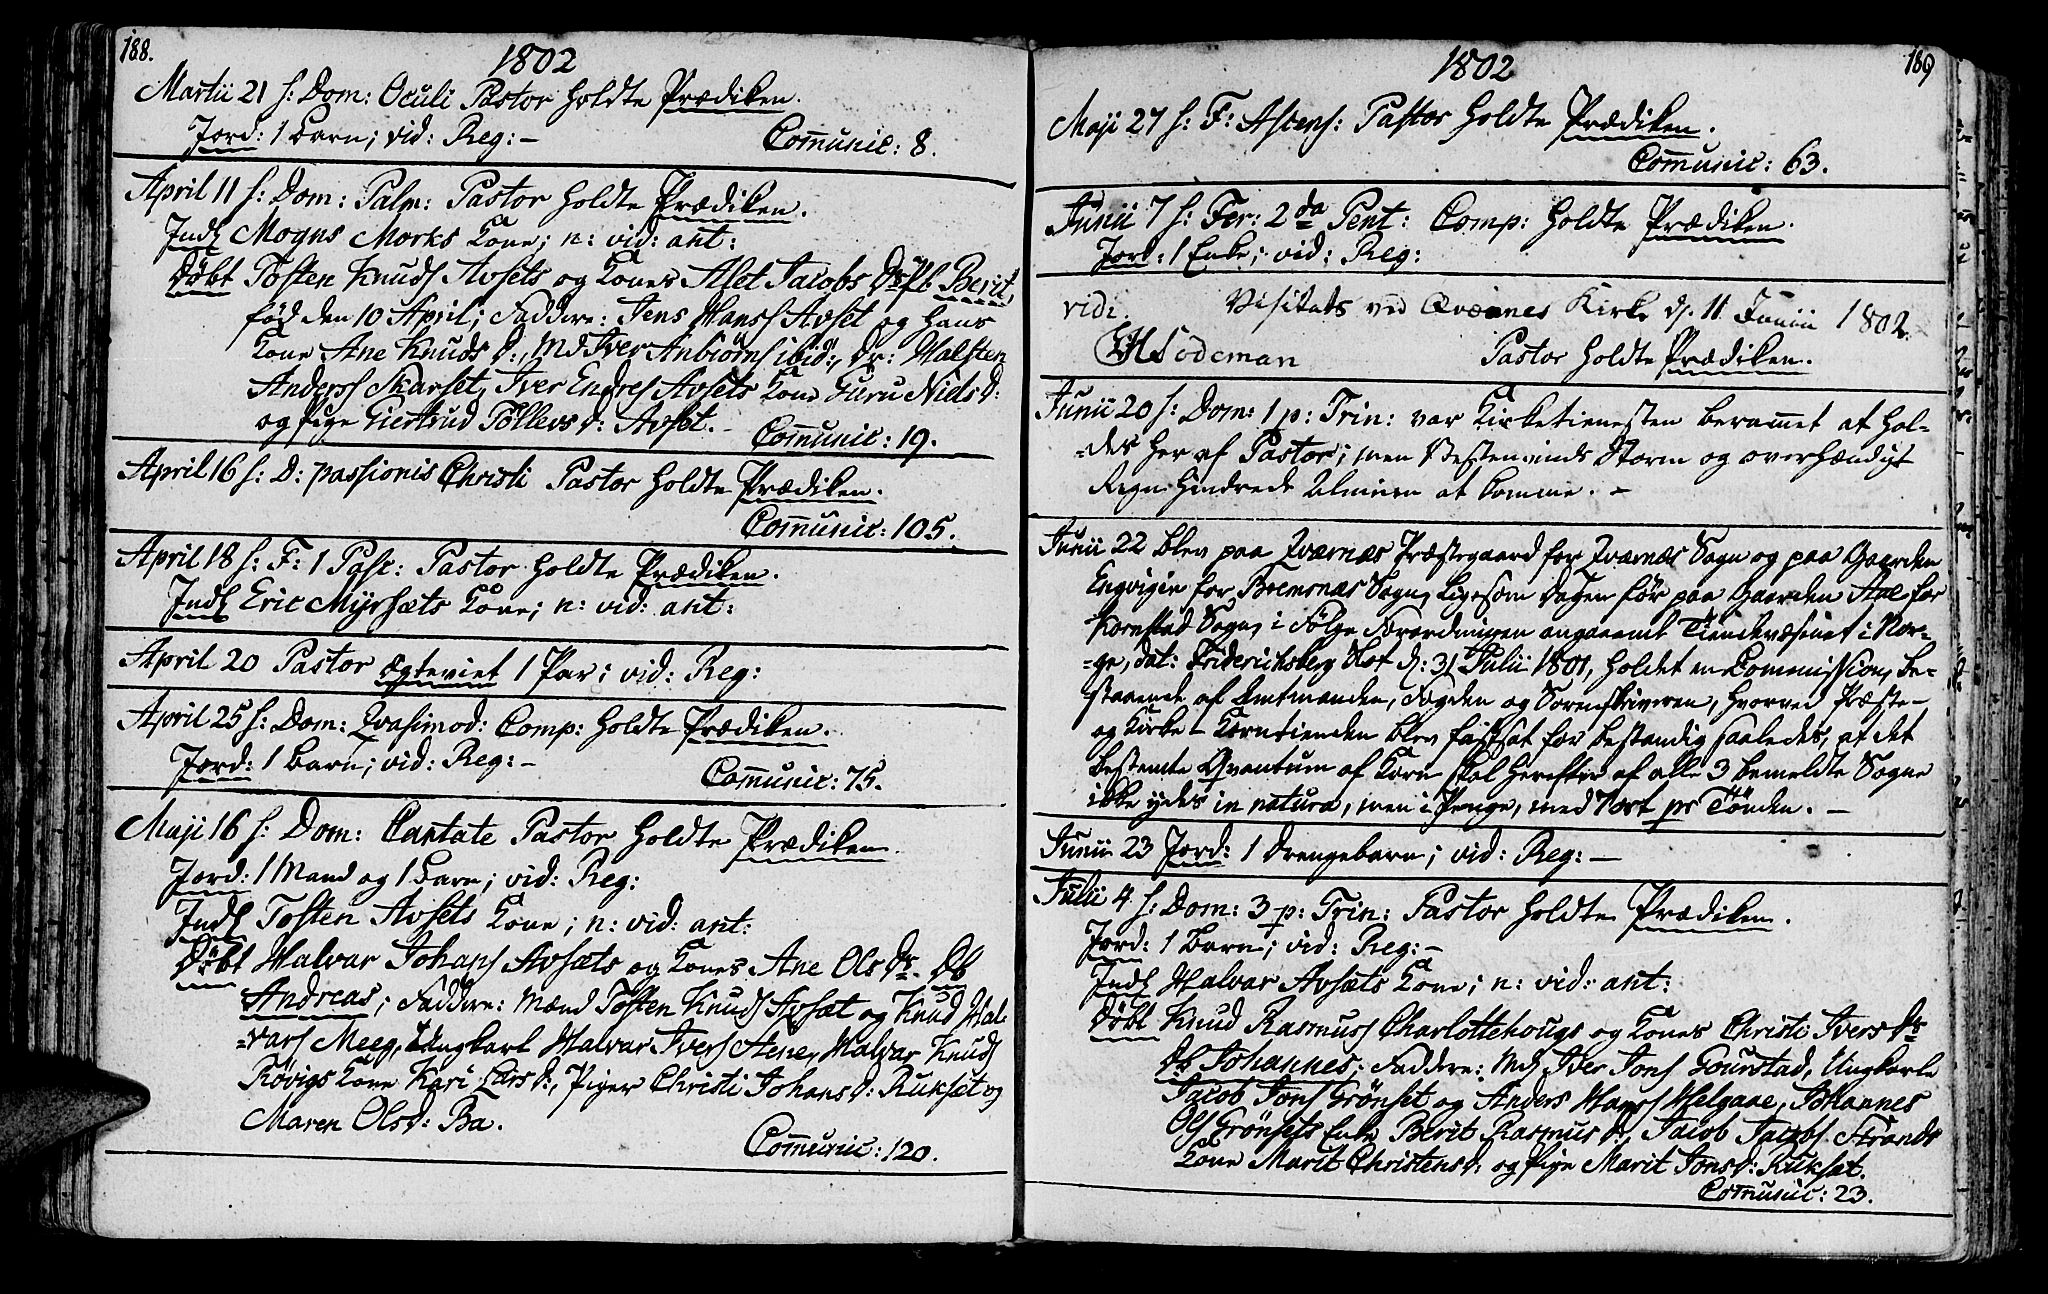 188.
1802
Martii 21 h: Dom: Oculi Pastor holdte Prædiken.
Jord: 1 Barn; vid: Reg:-
Comunic: 8.
April 11 h: Dom: Palm: Pastor holdte Prædiken.
Indl Mogns Morks Kone; n: vid: ant:
Døbt Tosten Knuds Avsets og Kones Alet Jacobs Dr Pb Berit,
fød den 10 April; Faddere: Jens Hanss Avset og hans
Kone Ane Knuds d:, Md Iver Anbiørns ibid:, Dr: Halsten
Anderss Skarset, Iver Endres Avsets Kone Guru Niels d:
og Pige Giertrud Tollevs d: Avset. -
Comunic: 19.
April 16 h: D: passionis Christi Pastor holdte Prædiken.
Comunic: 105.
April 18 h: F: 1 Pasc: Pastor holdte Prædiken.
Indl Eric Myrsæts Kone; n: vid: ant:
April 20 Pastor ægteviet 1 Par; vid: Reg:
April 25 h: Dom: Qvasimod: Comp: holdte Prædiken.
Jord: 1 Barn; vid: Reg:-
Comunic: 75.
Maji 16 h: Dom: Cantate Pastor holdte Prædiken.
Jord: 1 Mand og 1 Barn; vid: Reg:
Indl Tosten Avsets Kone; n: vid: ant:
Døbt Halvar Johans Avsæts og Kones Ane Ols Dr. Db
Andreas; Faddere: Mænd Tosten Knuds Avsæt og Knud Hal-
=vars Meeg, Ungkarl Halvar Ivers Stene, Halvar Knuds
Røvigs Kone Kari Lars d:, Piger Christi Johans d: Ruksæt og
Maren Olsd: Ba.
Comunic: 120.
189
1802
Maji 27 h: F: Ascens: Pastor holdte Prædiken.
Comunic: 63.
Junii 7 h: Fer: 2da Pent: Comp: holdte Prædiken.
Jord: 1 Enke; vid: Reg:
vidi. Visitats ved Qværnes Kirke d. 11 Junii 1802.
Sodeman Pastor holdte Prædiken.
Junii 20 h: Dom: 1 p: Trin: var Kirketienesten beramet at hol-
=des her af Pastor; men Vestenvinds Storm og overhændigt
Regn hindrede Almuen at komme. -
Junii 22 blev paa Qværnæs Præstegaard for Qværnæs Sogn og paa Gaarden
Engvigen for Bremsnæs Sogn, ligesom Dagen før paa Gaarden Aae for
Kornstad Sogn, i Følge Forordningen angaaende Tiendevæsenet i Nor-
=ge, dat: Friderichsberg Slot d: 31 Julii 1801, holdet en Commission, be-
staaende af Amtmanden, Fogden og Sorenskriveren, hvorved Præste-
og Kirke-Korntienden blev fastsat for bestandig saaledes, at det
bestemte Qvantum af Korn skal herefter af alle 3 bemeldte Sogne
ikke ydes in natura, men i Penge, med 7 ort pr Tønden. -
Junii 23 Jord: 1 Drengebarn; vid: Reg: -
Julii 4 h: Dom: 3 p: Trin: Pastor holdte Prædiken.
Jord: 1 Barn; vid: Reg:-
Indl Halvar Avsæts Kone; n: vid: ant:
Døbt Knud Rasmuss Charlottehougs og Kones Christi Ivers Dr
Db Johannes; Faddere: Md Iver Jons Gourstad, Ungkarle
Jacob Jons Grønset og Anders Hanss Helgaae, Johannes
Ols Grønsets Enke Berit Rasmus d:, Jacob Jacobs Strands
Kone Marit Christens d: og Pige Marit Jons d: Ruksæt.
Comunic: 23.